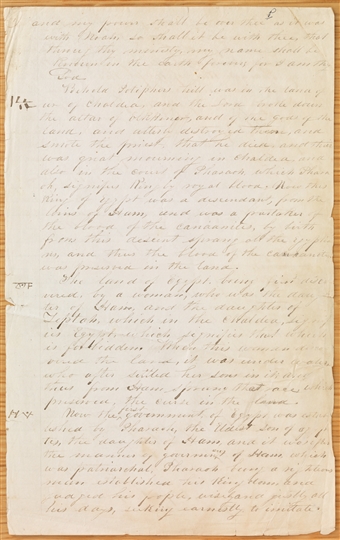 and my power shall be over thee as it was
with Noah so shall it be with thee, that
through thy ministry, my name shall be
known in the earth forever, for I am thy
God.
Behold Potiphers hill was in the land of
ur of Chaldea, and the Lord broke down
the altar of and of the gods of the
land, and utterly destroyed them, and
smote the priest, that he died, and there
was great mourning in Chaldea, and
also in the court of Pharaoh, which Phara
oh, signifies King by royal blood. Now this
King of egypt was a descendant, from the
loins of Ham, and was a partaker of
the blood of the canaanites, by birth
From this descent sprang all the egyptia
ns, and thus the blood of the canaanites
was preserved in the land.
The land of Egypt, being first discov
ered, by a woman, who was the daugh
ter of Ham, and the daughter of
which in the Chaldea, signif
ies Egypt, which signifies that which
is forbidden. When this woman discov
ered the land, it was under water
who after settled her sons in it, and
thus from Ham, sprang that race, which
preserved, the curse in the land.
Now the first government, of egypt, was establ
ished by Pharaoh, the Eldest son of egyp
tes, the daughter of Ham, and it was after
the manner of government of Ham, which
was patriarchal, Pharaoh being a righteous
man established his kingdom, and
judged his people, wisely and justly all
his days, seeking earnestly to imitate